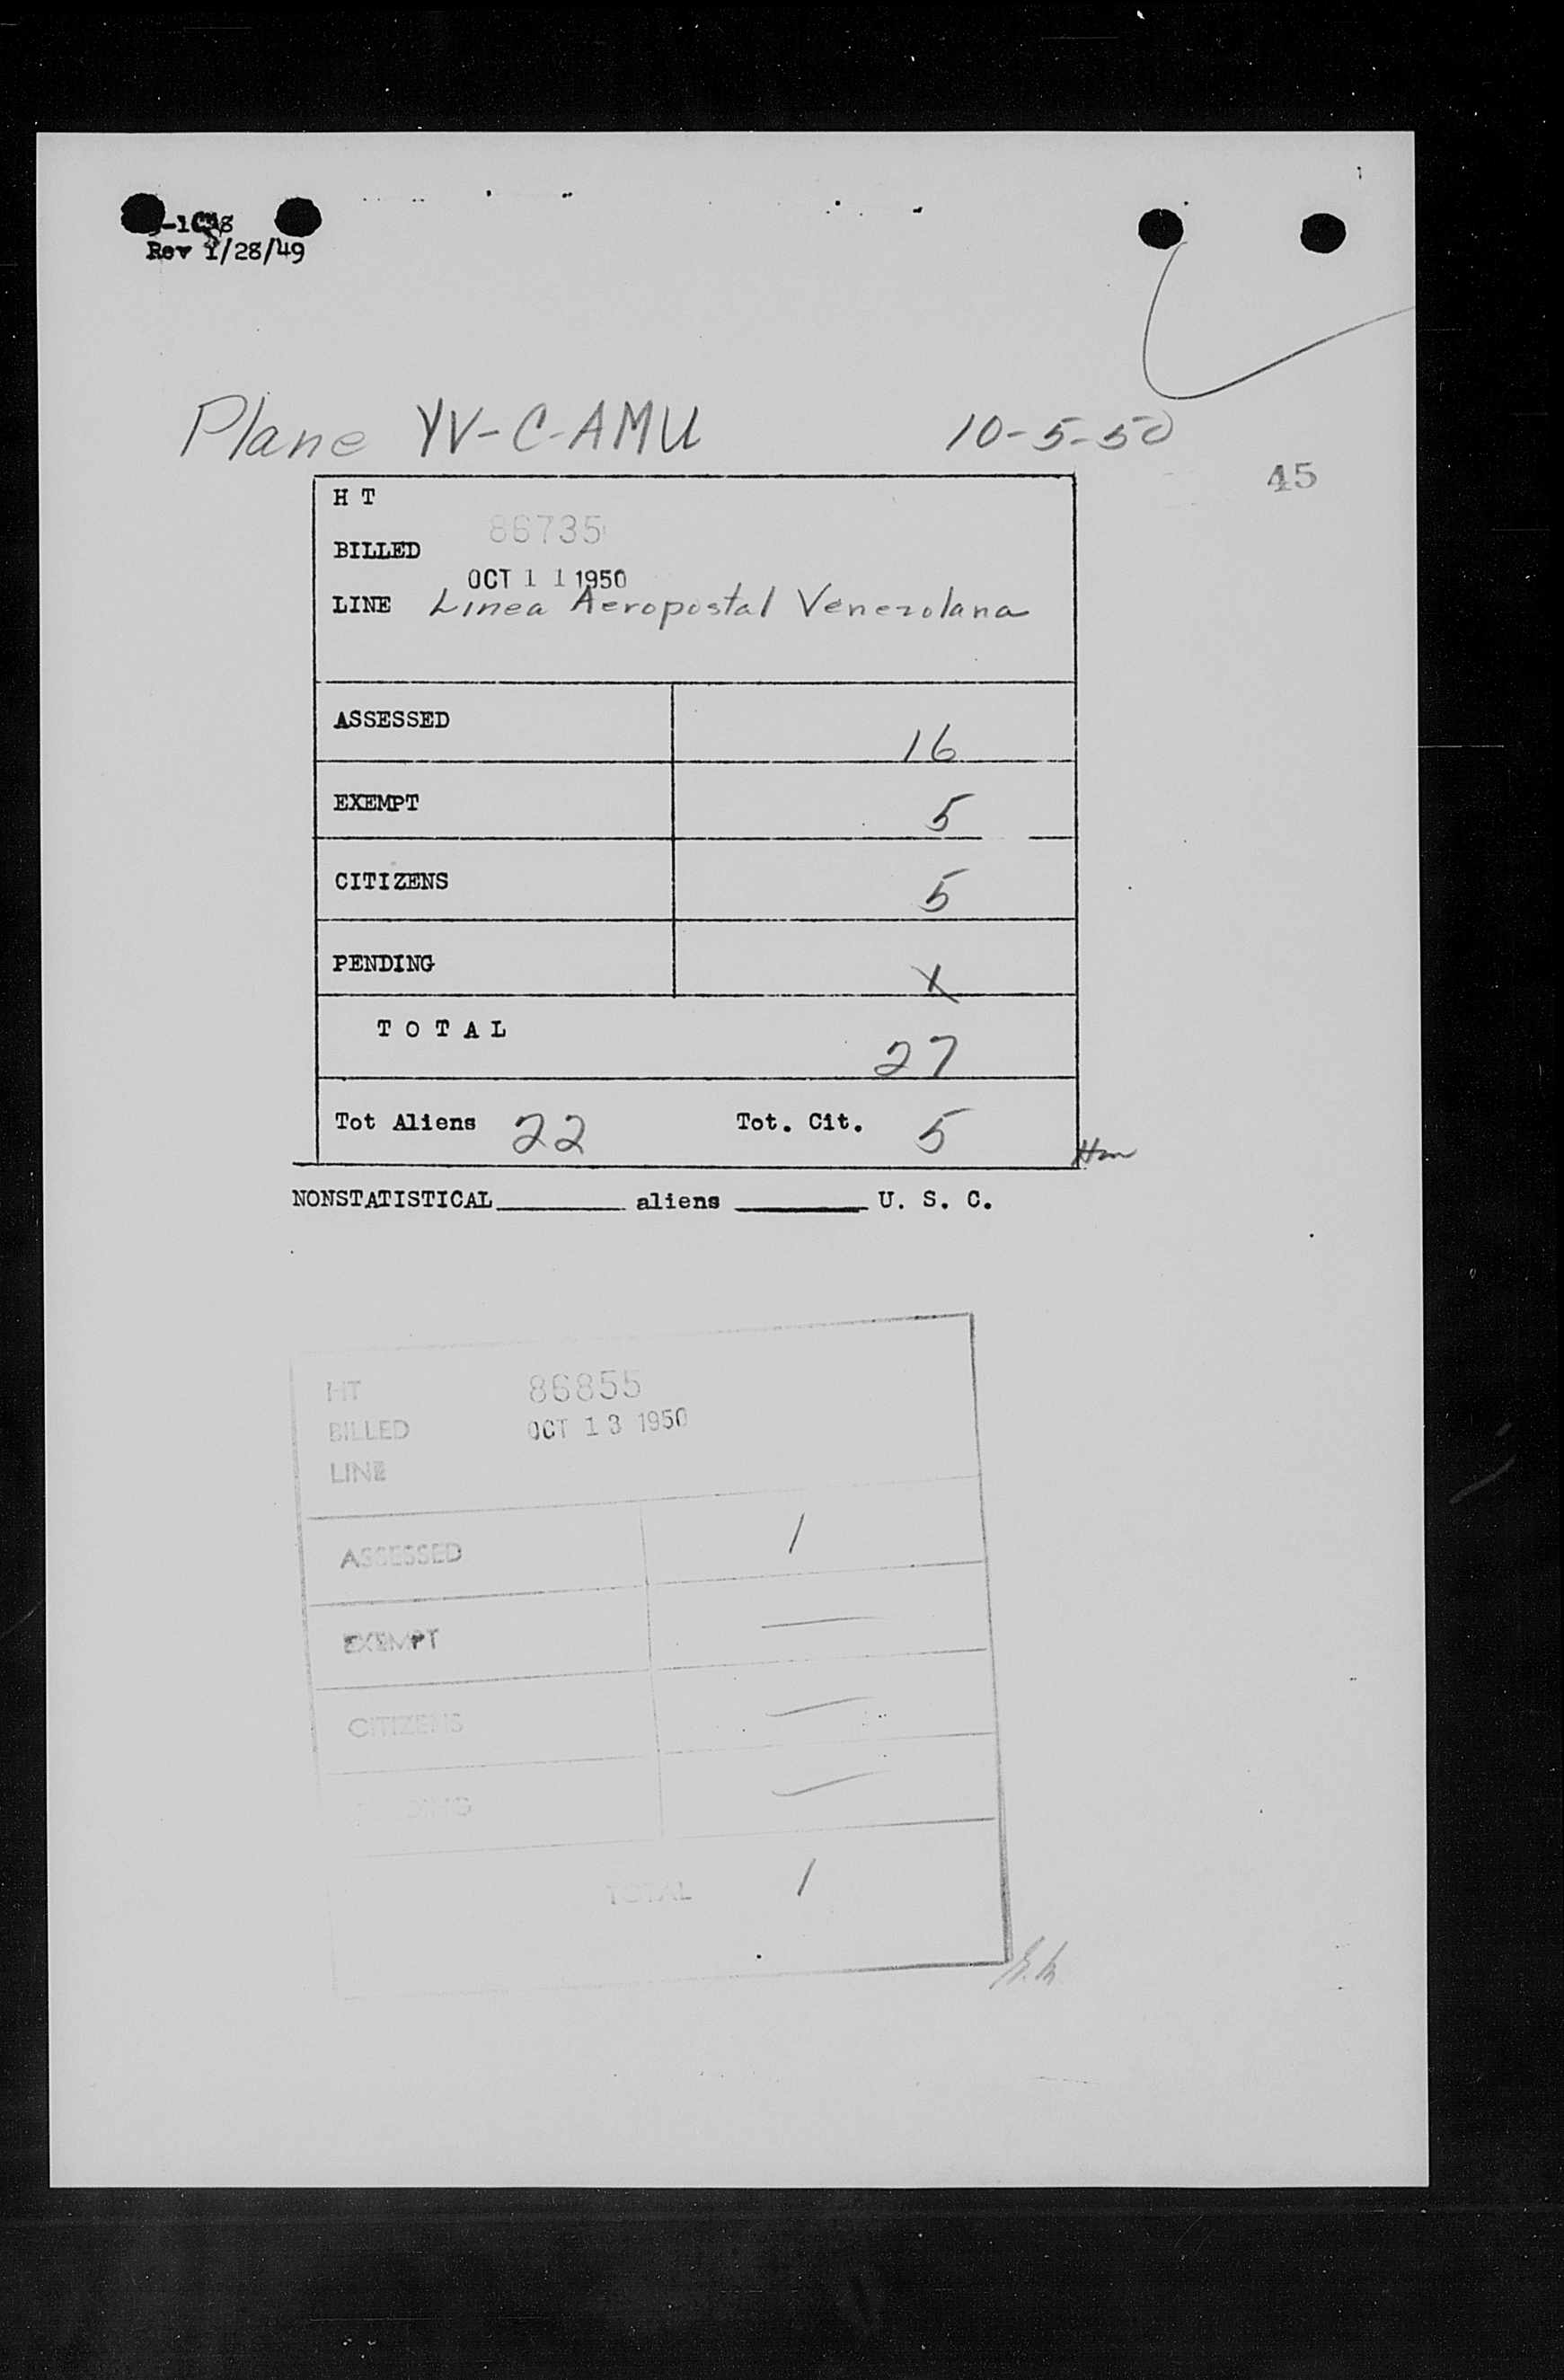 Rev 1/28/49
Plane YV-C-AMU 10-5-50
45
H T
86735
BILLED
OCT 1 1 1950
LINE Linea Aeropostal Venezolana
ASSESSED 16
EXEMPT 5
CITIZENS 5
PENDING X
T O T A L 27
Tot Aliens 22 Tot. Cit. 5
NONSTATISTICAL________ aliens ________ U. S. C.
HT 86855
BILLED OCT 13 1950
LINE
ASSESSED 1
EXEMPT —
CITIZENS —
—
TOTAL 1